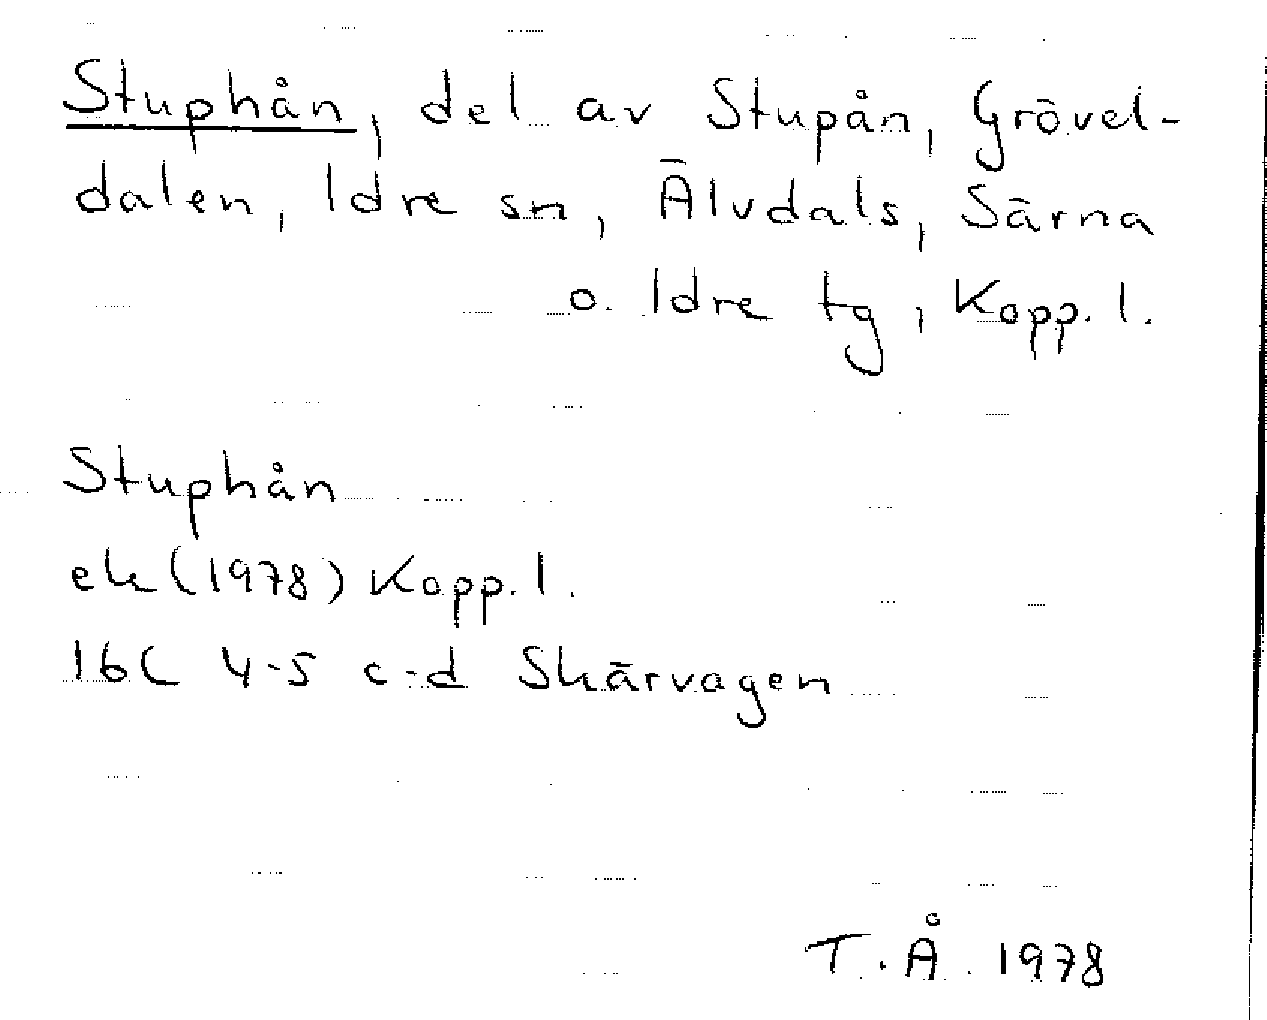 Stuphån, del av Stupån, Grövel-
dalen, Idre sn, Älvdals, Särna
o. Idre tg, Kopp. l.
Stuphån
ek (1978) Kopp. l.
16C 4-5 c-d Skärvagen
T.Å. 1978